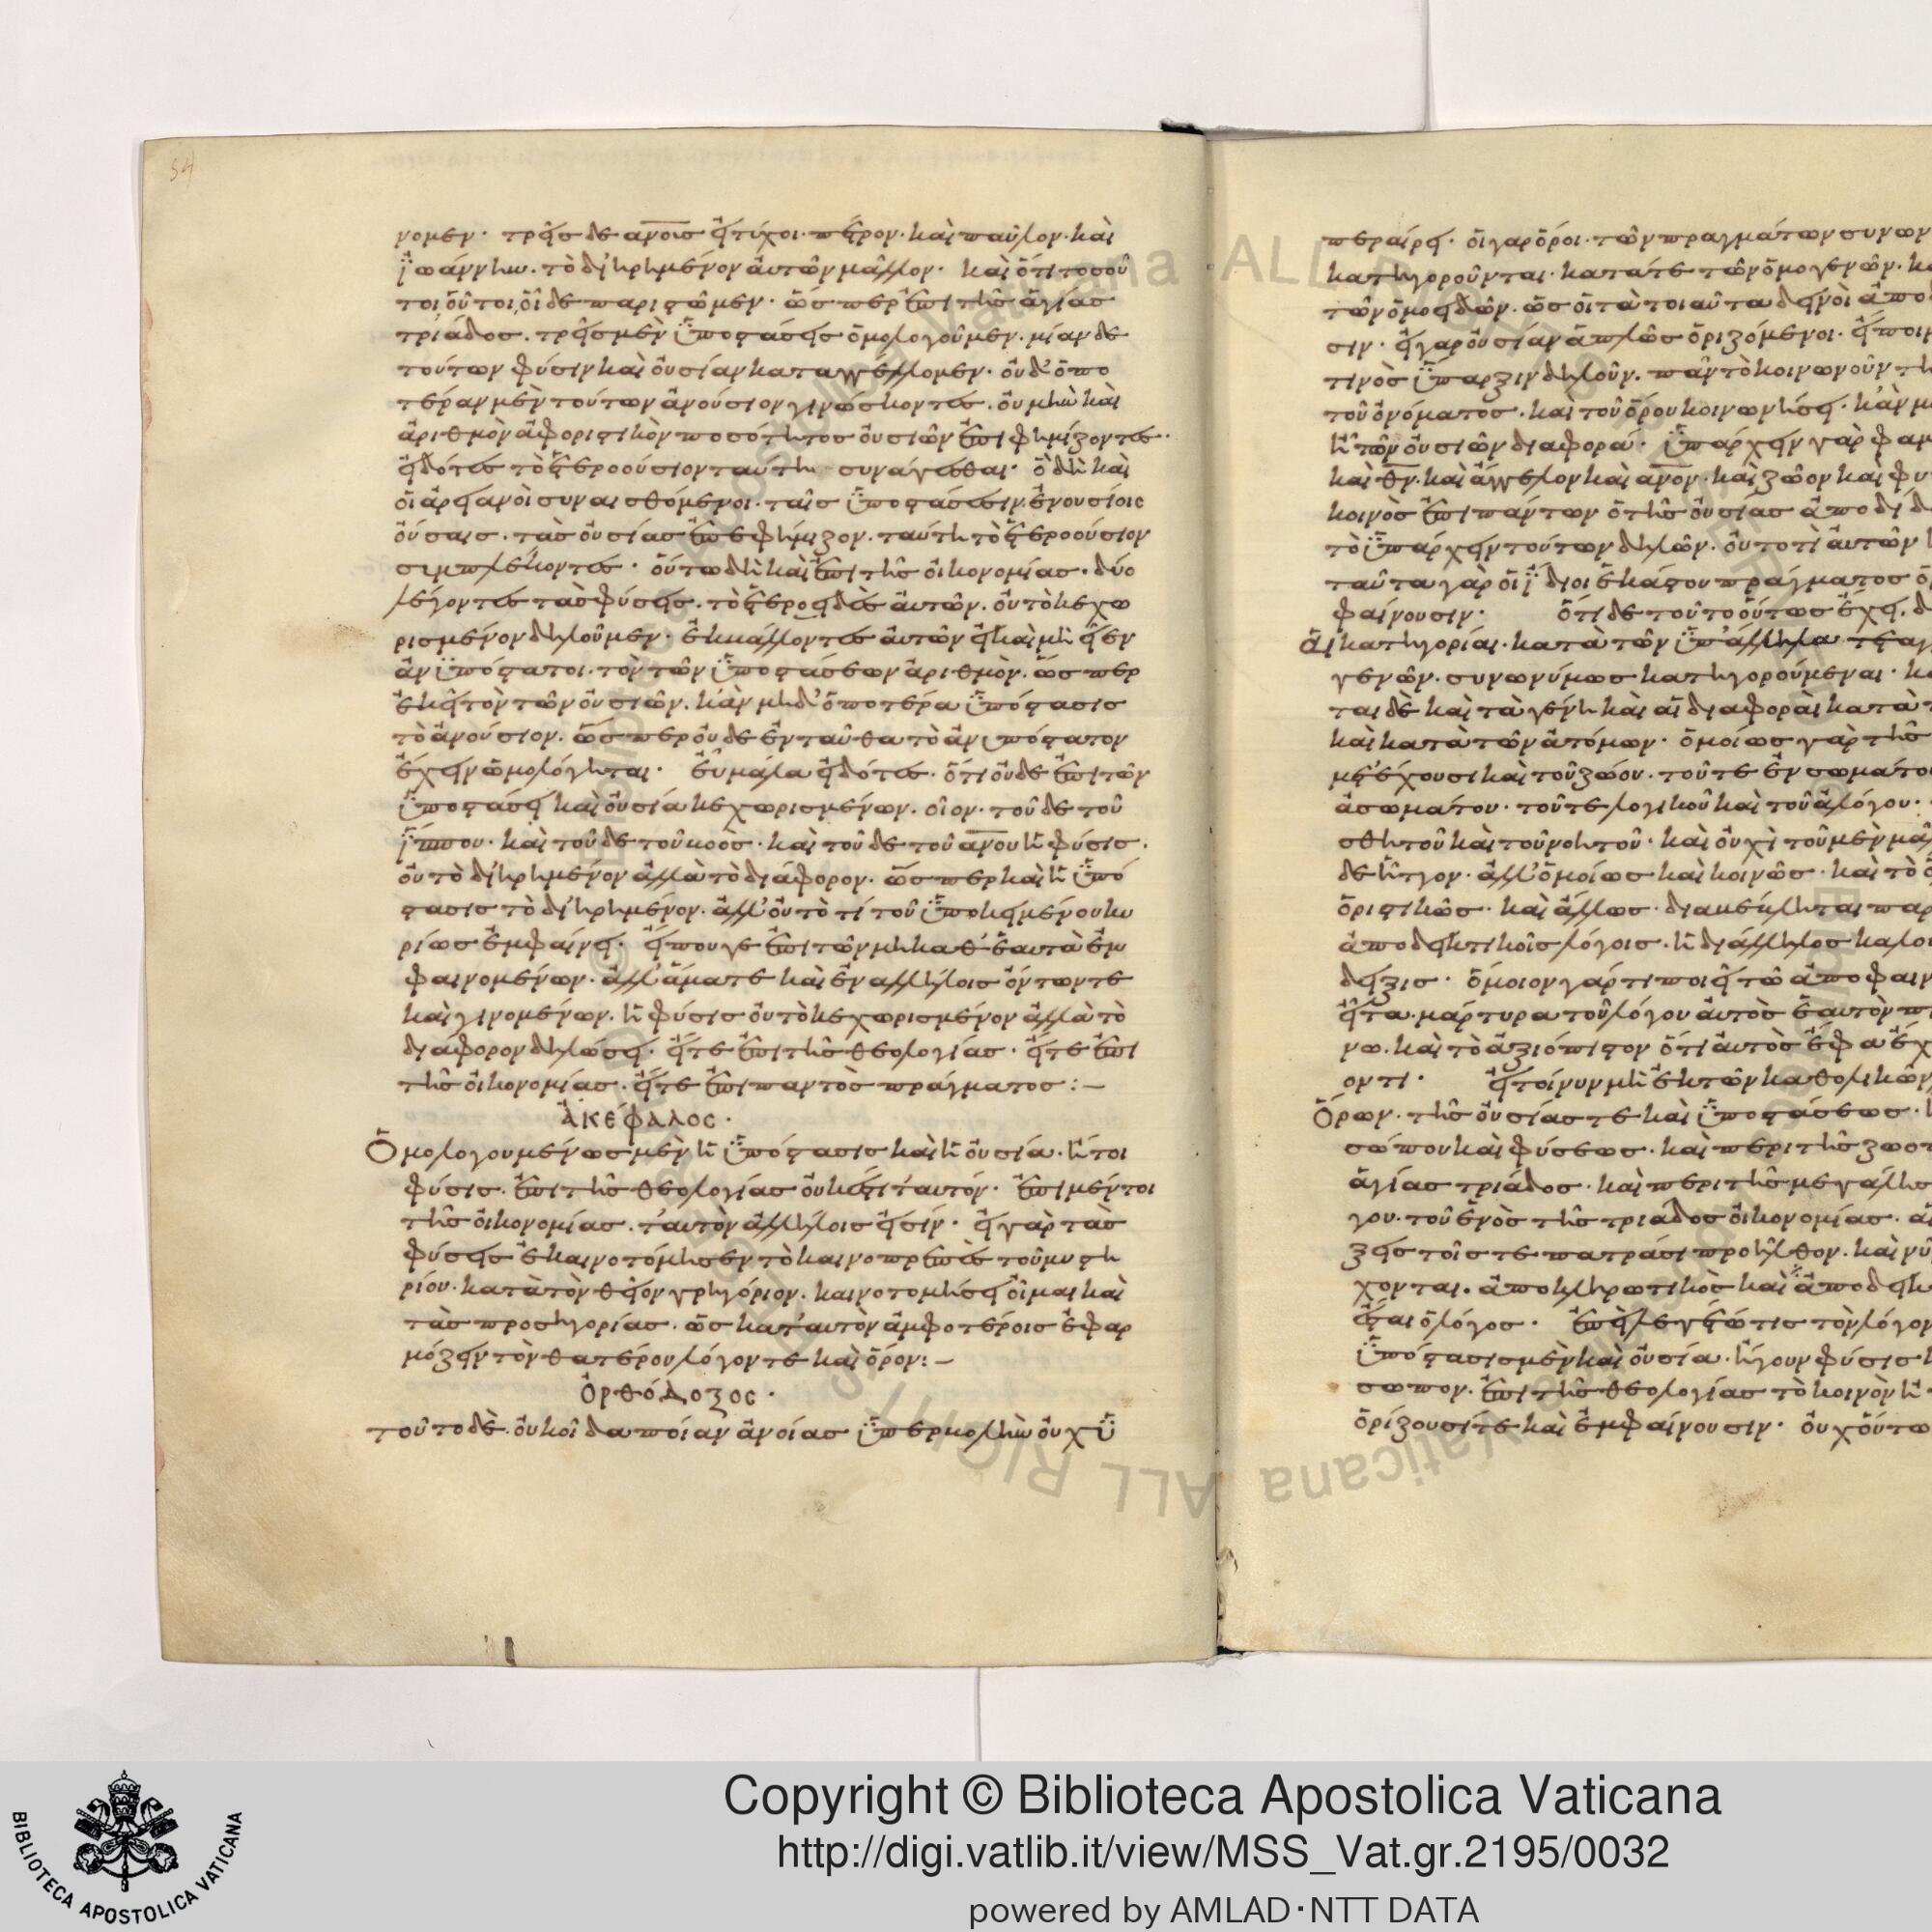 54
νομεν· τρεῖς δὲ ανοις εἰ τύχοι· πέτρον· καὶ παῦλον· καὶ
ἰωάννην. τὸ διηρημένον αὐτῶν μᾶλλον· καὶ ὅτι τοσοῦ
τοι οὗτοι, οἵδε παριστῶμεν· ὥσπερ ἐπὶ τῆς ἁγίας
τριάδος. τρεῖς μὲν ὑποστάσεις ὁμολογοῦμεν. μίαν δὲ
τούτων φύσιν καὶ οὐσίαν καταγγέλλομεν· οὐδ' ὁπο
τέραν μὲν τούτων ἀνούσιον γινώσκοντες. οὐ μὴν καὶ
ἀριθμὸν ἀφοριστικὸν ποσότητος οὐσιῶν ἐπιφημίζοντες·
εἰδότες τὸ ἑτεροούσιον ταύτη συνάγεσθαι· ὃ δὴ καὶ
οἱ ἀρειανοὶ συναισθόμενοι· ταῖς ὑποστάσεσιν ἐνουσίοις
οὔσαις. τὰς οὐσίας ἐπεφήμιζον. ταύτη τὸ ἑτεροούσιον
συμπλέκοντες· οὕτω δὴ καὶ ἐπὶ τῆς οἰκονομίας. δύο
λέγοντες τὰς φύσεις. τὸ ἑτεροειδὲς αὐτῶν. οὐ τὸ κεχω
ρισμένον δηλοῦμεν· ἐκκλλοντες αὐτῶν εἰ καὶ μὴ εἶεν
ἀνυπόστατοι. τὸν τῶν ὑποστάσεων ἀριθμὸν. ὥσπερ
ἐκεῖ τὸν τῶν οὐσιῶν. κἀν μηδ' ὁποτέρα ὑπόστασις
τὸ ἀνούσιον. ὥσπερ οὐδὲ ἐνταῦθα τὸ ἀνυπόστατον
ἔχειν ὡμολόγηται· εὖ μάλα εἰδότες. ὅτι οὐδὲ ἐπὶ τῶν
ὑποστάσει καὶ οὐσία κεχωρισμένων. οἷον· τοῦδε τοῦ
ἵππου· καὶ τοῦδε τοῦ βοὸς· καὶ τοῦδε τοῦ ανου ἡ φύσις.
οὐ τὸ διηρημένον ἀλλὰ τὸ διάφορον. ὥσπερ καὶ ἡ ὑπό
στασις τὸ διηρημένον. ἀλλ' οὐ τὸ τί τοῦ ὑποκειμένου κυ
ρίως ἐμφαίνει· εἴπου γε ἐπὶ τῶν μὴ καθ' ἑαυτὰ ἐμ
φαινομένων. ἀλλ' ἅμα τε καὶ ἐν ἀλλήλοις ὄντων τε
καὶ γινομένων. ἡ φύσις οὐ τὸ κεχωρισμένον ἀλλὰ τὸ
διάφορον δηλώσει· εἴτε ἐπὶ τῆς θεολογίας· εἴτε ἐπὶ
τῆς οἰκονομίας. εἴτε ἐπὶ παντὸς πράγματος:—
ἀκέφαλος.
Ὁμολογουμένως μὲν ἡ ὑπόστασις καὶ ἡ οὐσία. ἤτοι
φύσις. ἐπὶ τῆς θεολογίας οὐκ ἔστι ταυτόν· ἐπὶ μέντοι
τῆς οἰκονομίας. ταυτὸν ἀλλήλοις εἰσίν· εἰ γὰρ τὰς
φύσεις ἐκαινοτόμησεν τὸ καινοπρεπὲς τοῦ μυστη
ρίου· κατὰ τὸν θεῖον γρηγόριον. καινοτομήσει οἶμαι καὶ
τὰς προσηγορίας. ὡς κατ' αυτὸν ἀμφοτέροις ἐφαρ
μόζειν τὸν θατέρου λόγον τε καὶ ὅρον:—
ὀρθόδοξος.
τοῦτο δὲ. οὐκ οἶδα ποίαν ἀνοίας ὑπερβολὴν οὐχ ὑ
περαίρει· οἱ γὰρ ὅροι· τῶν πραγμάτων συνων
κατηγοροῦνται· κατά τε τῶν ὁμογενῶν. κα
τῶν ὁμοειδῶν. ὡς οἱ τὰ τοιαῦτα δεινοὶ ἀποδ
σιν· εἰ γὰρ οὐσίαν ἁπλῶς ὁριζόμενοι. εἴποιμ
τινὸς ὕπαρξιν δηλοῦν. πᾶν τὸ κοινωνοῦν τη
τοῦ ὀνόματος. καὶ τοῦ ὅρου κοινωνήσει. κἀν μ
ἡ τῶν οὐσιῶν διαφορά· ὑπάρχειν γὰρ φαμ
καὶ θν. καὶ ἄγγελον καὶ ανον. καὶ ζῶον καὶ φυ
κοινὸς ἐπὶ πάντων ὁ τῆς οὐσίας ἀποδίδ
τὸ ὑπάρχειν τούτων δηλῶν. οὐ τὸ τί αὐτῶν
ταῦτα γὰρ οἱ ἴδιοι ἑκάστου πράγματος ὅ
φαίνουσιν· ὅτι δὲ τοῦτο οὕτως ἔχει. δ
αἱ κατηγορίαι. κατὰ τῶν ὑπάλληλα τεταγ
γενῶν. συνωνύμως κατηγορούμεναι· κα
ται δὲ καὶ τὰ γένη καὶ αἱ διαφοραὶ κατὰ τ
καὶ κατὰ τῶν ἀτόμων· ὁμοίως γὰρ τῆς
μετέχουσι καὶ τοῦ ζώου. τοῦ τε ἐν σωματο
ἀσωμάτου· τοῦ τε λογικοῦ καὶ τοῦ ἀλόγου·
σθητοῦ καὶ τοῦ νοητοῦ· καὶ οὐχὶ τοῦ μὲν μᾶ
δὲ ἧττον· ἀλλ' ὁμοίως καὶ κοινῶς· καὶ τὸ
ὁριστικῶς· καὶ ἄλλως· διαβέβληται παρ
ἀποδεικτικοῖς λόγοις. ἡ διάλληλος καλου
δεῖξις· ὅμοιον γάρ τι ποιεῖ τῶ ἀποφαιν
εἶτα μάρτυρα τοῦ λόγου αὐτὸς ἑαυτὸν π
νω. καὶ τὸ ἀξιόπιστον ὅτι αὐτὸς ἔφα ἔχ
οντι· εἰ τοίνυν μὴ ἐκ τῶν καθολικῶν
Ὅρων. τῆς οὐσίας τε καὶ ὑποστάσεως.
σώπου καὶ φύσεως. καὶ περὶ τῆς ζωο
ἁγίας τριάδος. καὶ περὶ τῆς μεγάλης
γου. τοῦ ἑνὸς τῆς τριάδος οἰκονομίας. αἱ
ξεις τοῖς τε πατράσι προῆλθον. καὶ νῦ
χονται. ἀποκληρωτικὸς καὶ ἀποδεικ
ἔσται ὁ λόγος. ἐπεὶ λεγέτω τις τὸν λόγον
ὑπόστασις μὲν καὶ οὐσία. ἤγουν φύσις
σωπον. ἐπὶ τῆς θεολογίας τὸ κοινὸν ἢ
ὁρίζουσί τε καὶ ἐμφαίνουσιν· οὐχ οὕτω
Copyright © Biblioteca Apostolica Vaticana
http://digi.vatlib.it/view/MSS_Vat.gr.2195/0032
powered by AMLAD·NTT DATA
BIBLIOTECA APOSTOLICA VATICANA